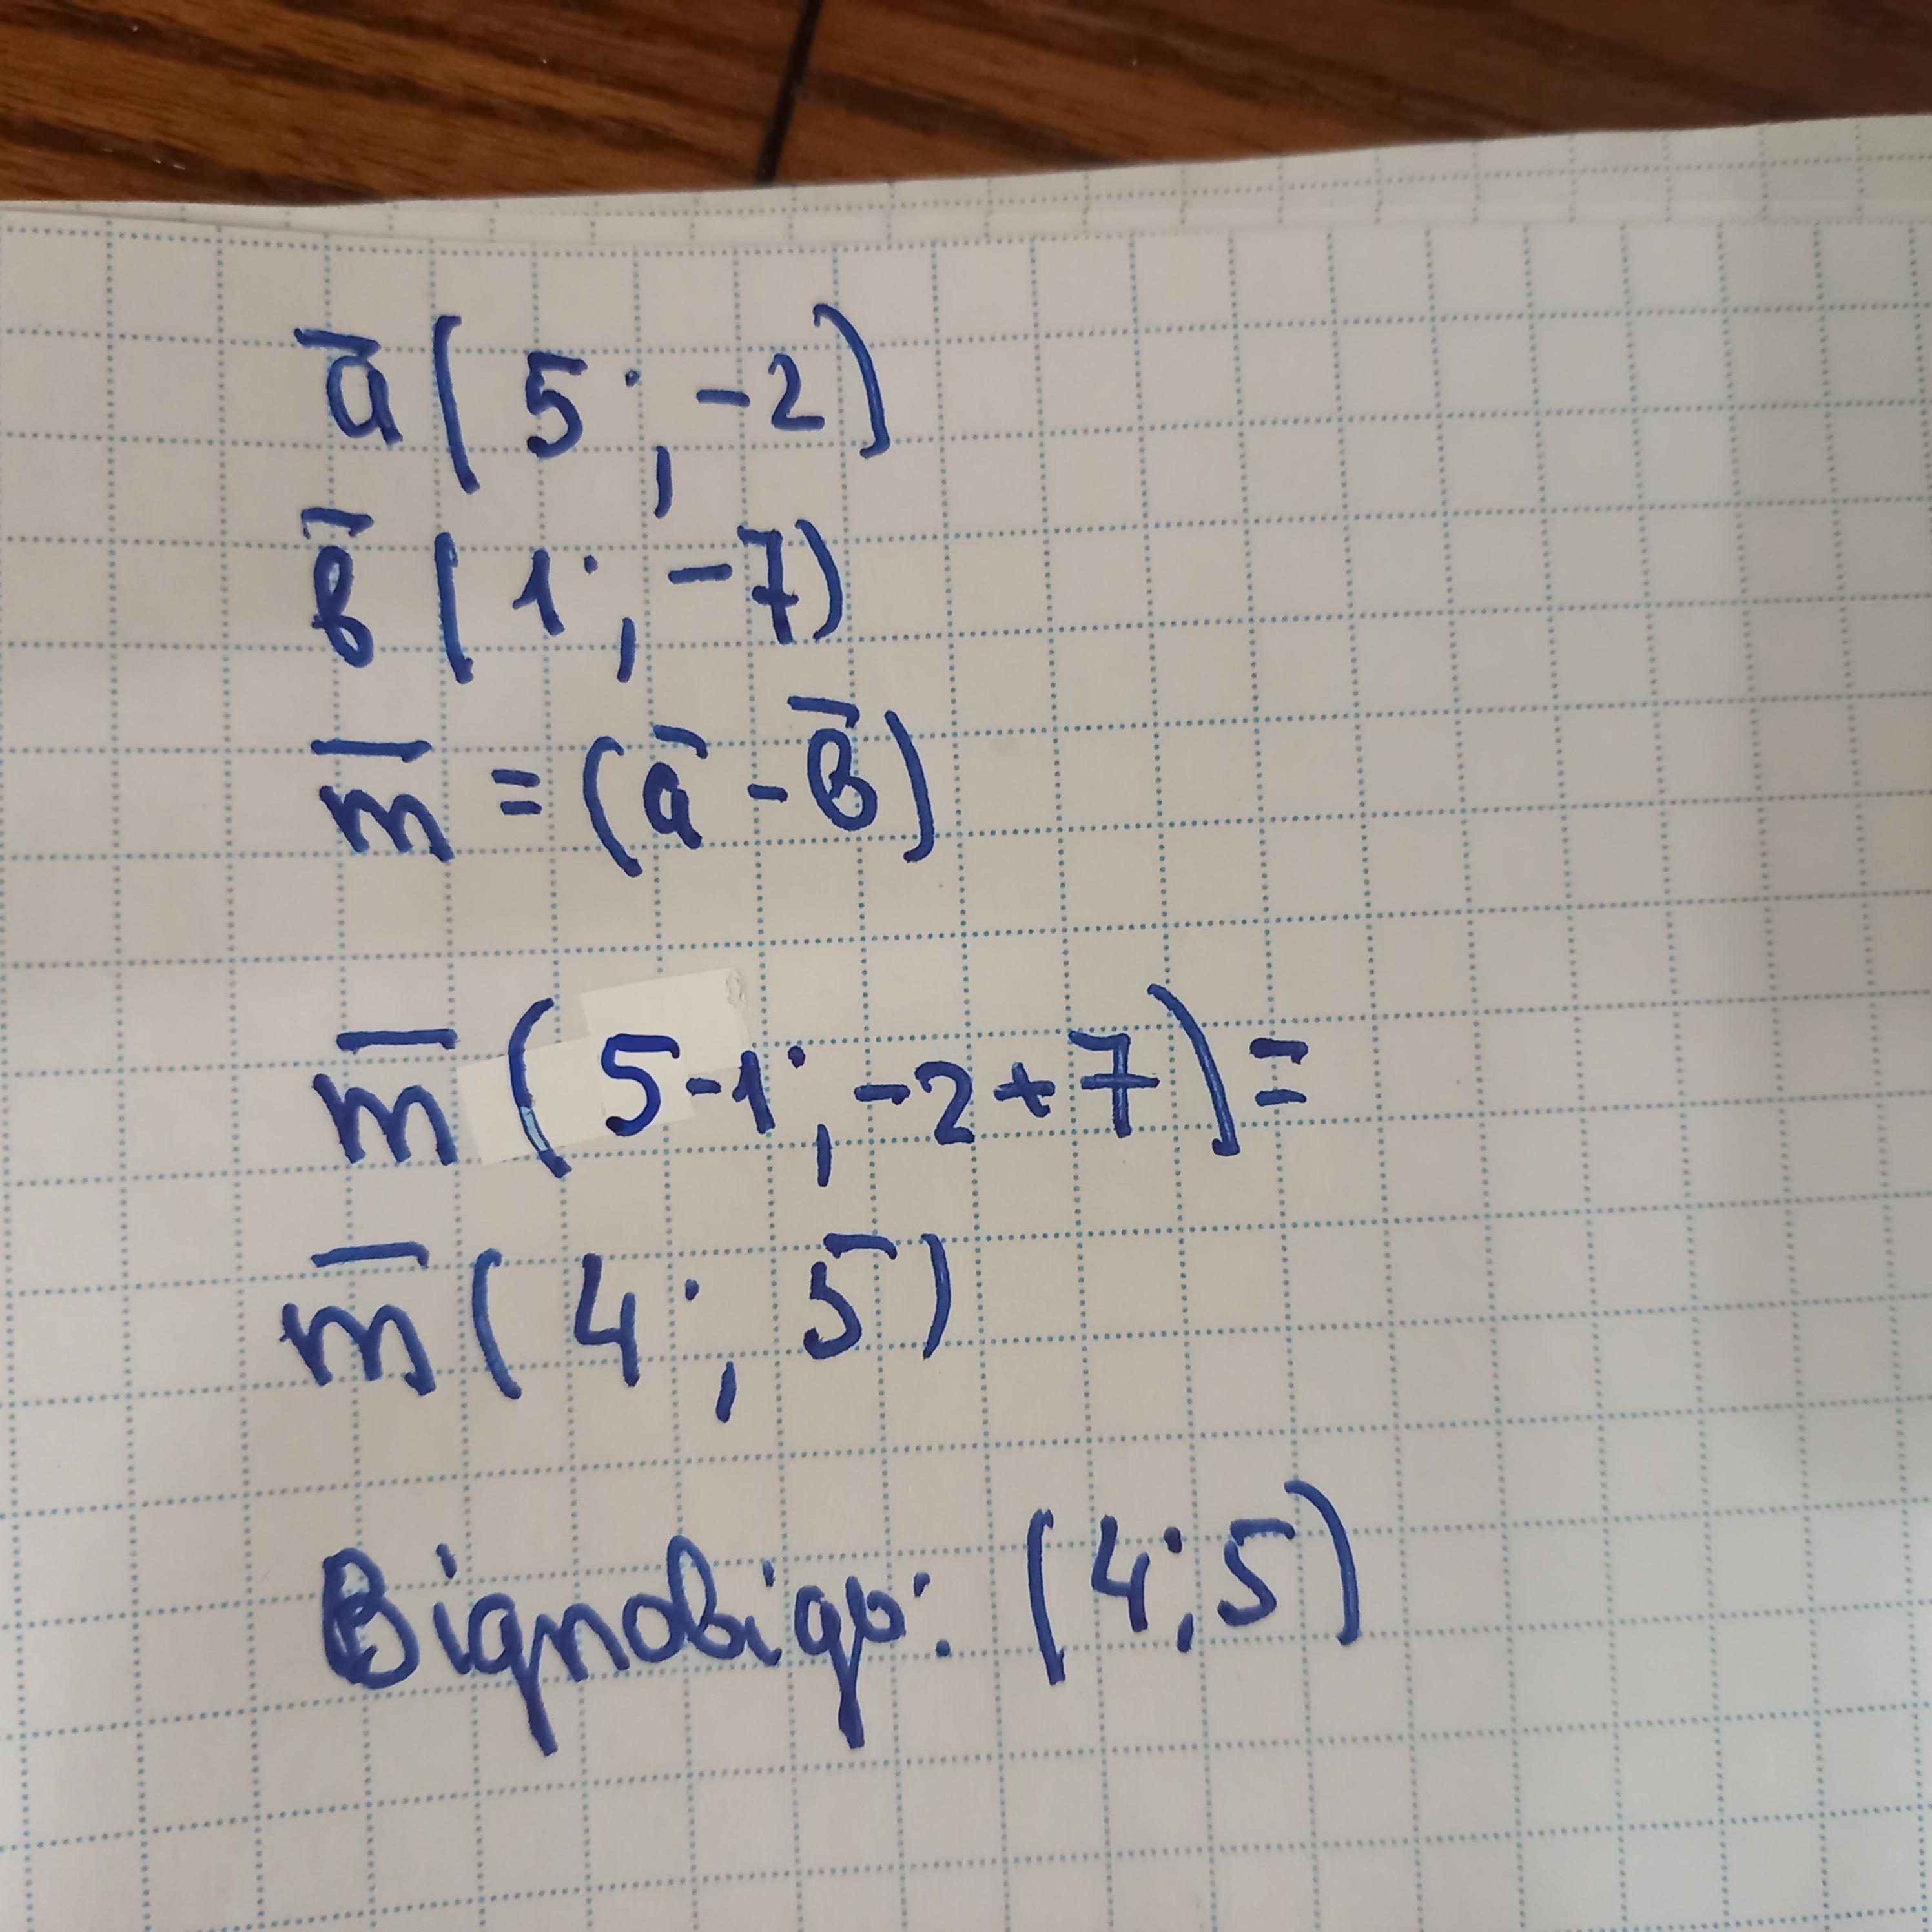 a̅ ( 5 ; -2 )
b̅ ( 1 ; -7 )
m̅ = ( a̅ - b̅ )
m̅ ( 5-1 ; -2 + 7 ) =
m̅ ( 4 ; 5 )
Відповідь: ( 4 ; 5 )